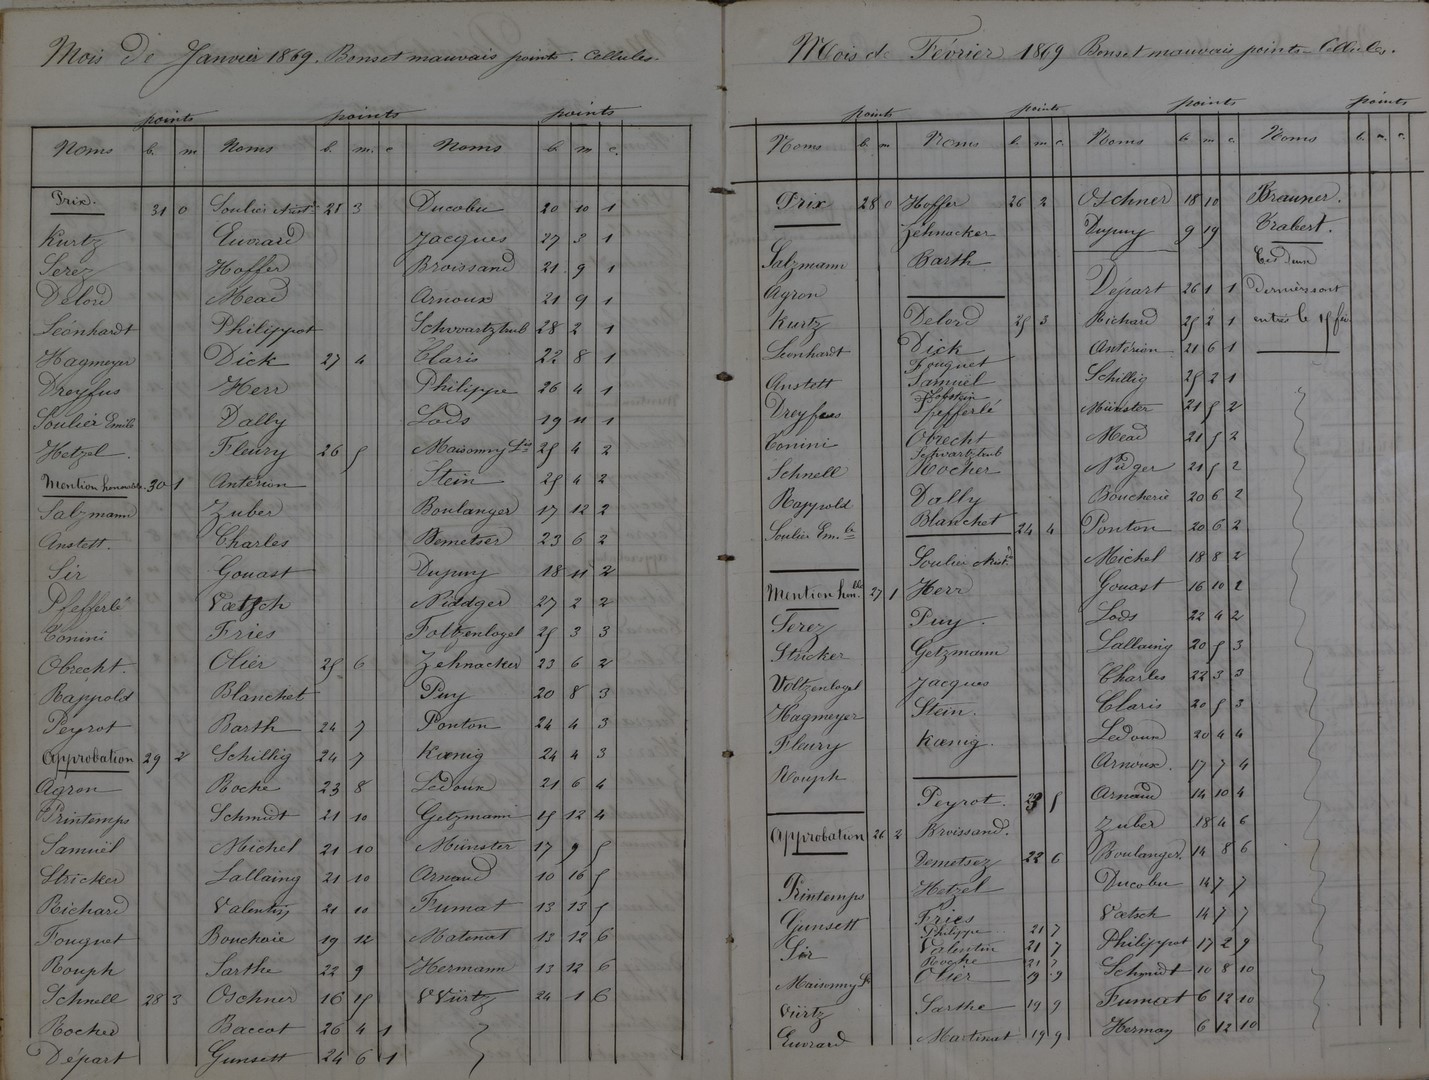 Mois de Janvier 1869. Bons et mauvais points. Cellules.
points points points
Noms b. m Noms b. m. c Noms b. m c.
Prix. 31 0 Soulier Aust. 28 3 Ducobu 20 10 1
Kurtz Euvrard Jacques 27 3 1
Serez Hoffer Broissand 21 9 1
Delord Mead Arnoux 21 9 1
Léonhardt Philippot Schwartztrub 28 2 1
Hagmeyer Dick 27 4 Claris 22 8 1
Dreyfus Herr Philippe 26 4 1
Soulier Emile Dally Lods 19 11 1
Hetzel. Fleury 26 5 Maisonny 25 4 2
Mention honorable. 30 1 Antérion Stein 25 4 2
Salzmann Zuber Boulanger 17 12 2
Anstett. Charles Demetser 23 6 2
Sir Gouast Dupuy 18 11 2
Pfefferlé Vœtsch Niddger 27 2 2
Conini Fries Foltzenlogel 25 3 3
Obrecht. Olier 25 6 Zehnacker 23 6 2
Rappold Blanchet Puy 20 8 3
Peyrot Barth 24 7 Ponton 24 4 3
Approbation 29 2 Schillig 24 7 Kœnig 24 4 3
Agron Roche 23 8 Ledoux 21 6 4
Printemps Schmidt 21 10 Getzmann 15 12 4
Samuël Michel 21 10 Münster 17 9 5
Stricker Lallaing 21 10 Arnaud 10 16 5
Richard Valentin 21 10 Fumat 13 13 5
Fouquet Bouchaie 19 12 Matenat 13 12 6
Rouph Sarthe 22 9 Hermann 13 12 6
Schnell 28 3 Oschner 16 15 Würtz 24 1 6
Rocher Baccot 26 4 1
Départ Gunsett 24 6 1
Mois de Février 1869 Bons et mauvais points - Cellules.
points points points points
Noms b. m Noms b. m c. Noms b. m c. Noms b. m. c.
Prix 28 0 Hoffer 26 2 Oschner 18 10 Brauner.
Zehnacker Dupuy 9 19 Trabert.
Salzmann Barth Ces deux
Agron Départ 26 1 1 derniers sont
Kurtz Delord 25 3 Richard 25 2 1 entrés le 15 fév
Léonhardt Dick Antérion 21 6 1
Fouquet
Anstett Samuel Schillig 25 2 1
Dreyfus Pfefferlé Münster 21 5 2
Conini Obrecht Mead 21 5 2
Schwartztrub
Schnell Rocher Nidger 21 5 2
Rappold Dally Boucherie 20 6 2
Soulier Em. Blanchet 24 4 Ponton 20 6 2
Soulier Aust. Michel 18 8 2
Mention hon. 27 1 Herr Gouast 16 10 2
Serez Puy. Lods 22 4 2
Stricker Getzmann Lallaing 20 5 3
Voltzenlogel Jacques Charles 22 3 3
Hagmeyer Stein. Claris 20 5 3
Fleury Kœnig. Ledoux 20 4 4
Rouph Arnoux. 17 7 4
Peyrot. 23 5 Arnaud 14 10 4
Approbation 26 2 Broissand. Zuber 18 4 6
Demetsez 22 6 Boulanger. 14 8 6
Printemps Hetzel Ducobu 14 7 7
Gunsett Fries Vœtsch 14 7 7
Philippe 21 7
Sir Valentin 21 7 Philippot 17 2 9
Roche 21 7
Maisonny Olier 19 9 Schmidt 10 8 10
Würtz Sarthe 19 9 Fumat 6 12 10
Euvrard Martinat 19 9 Herman 6 12 10